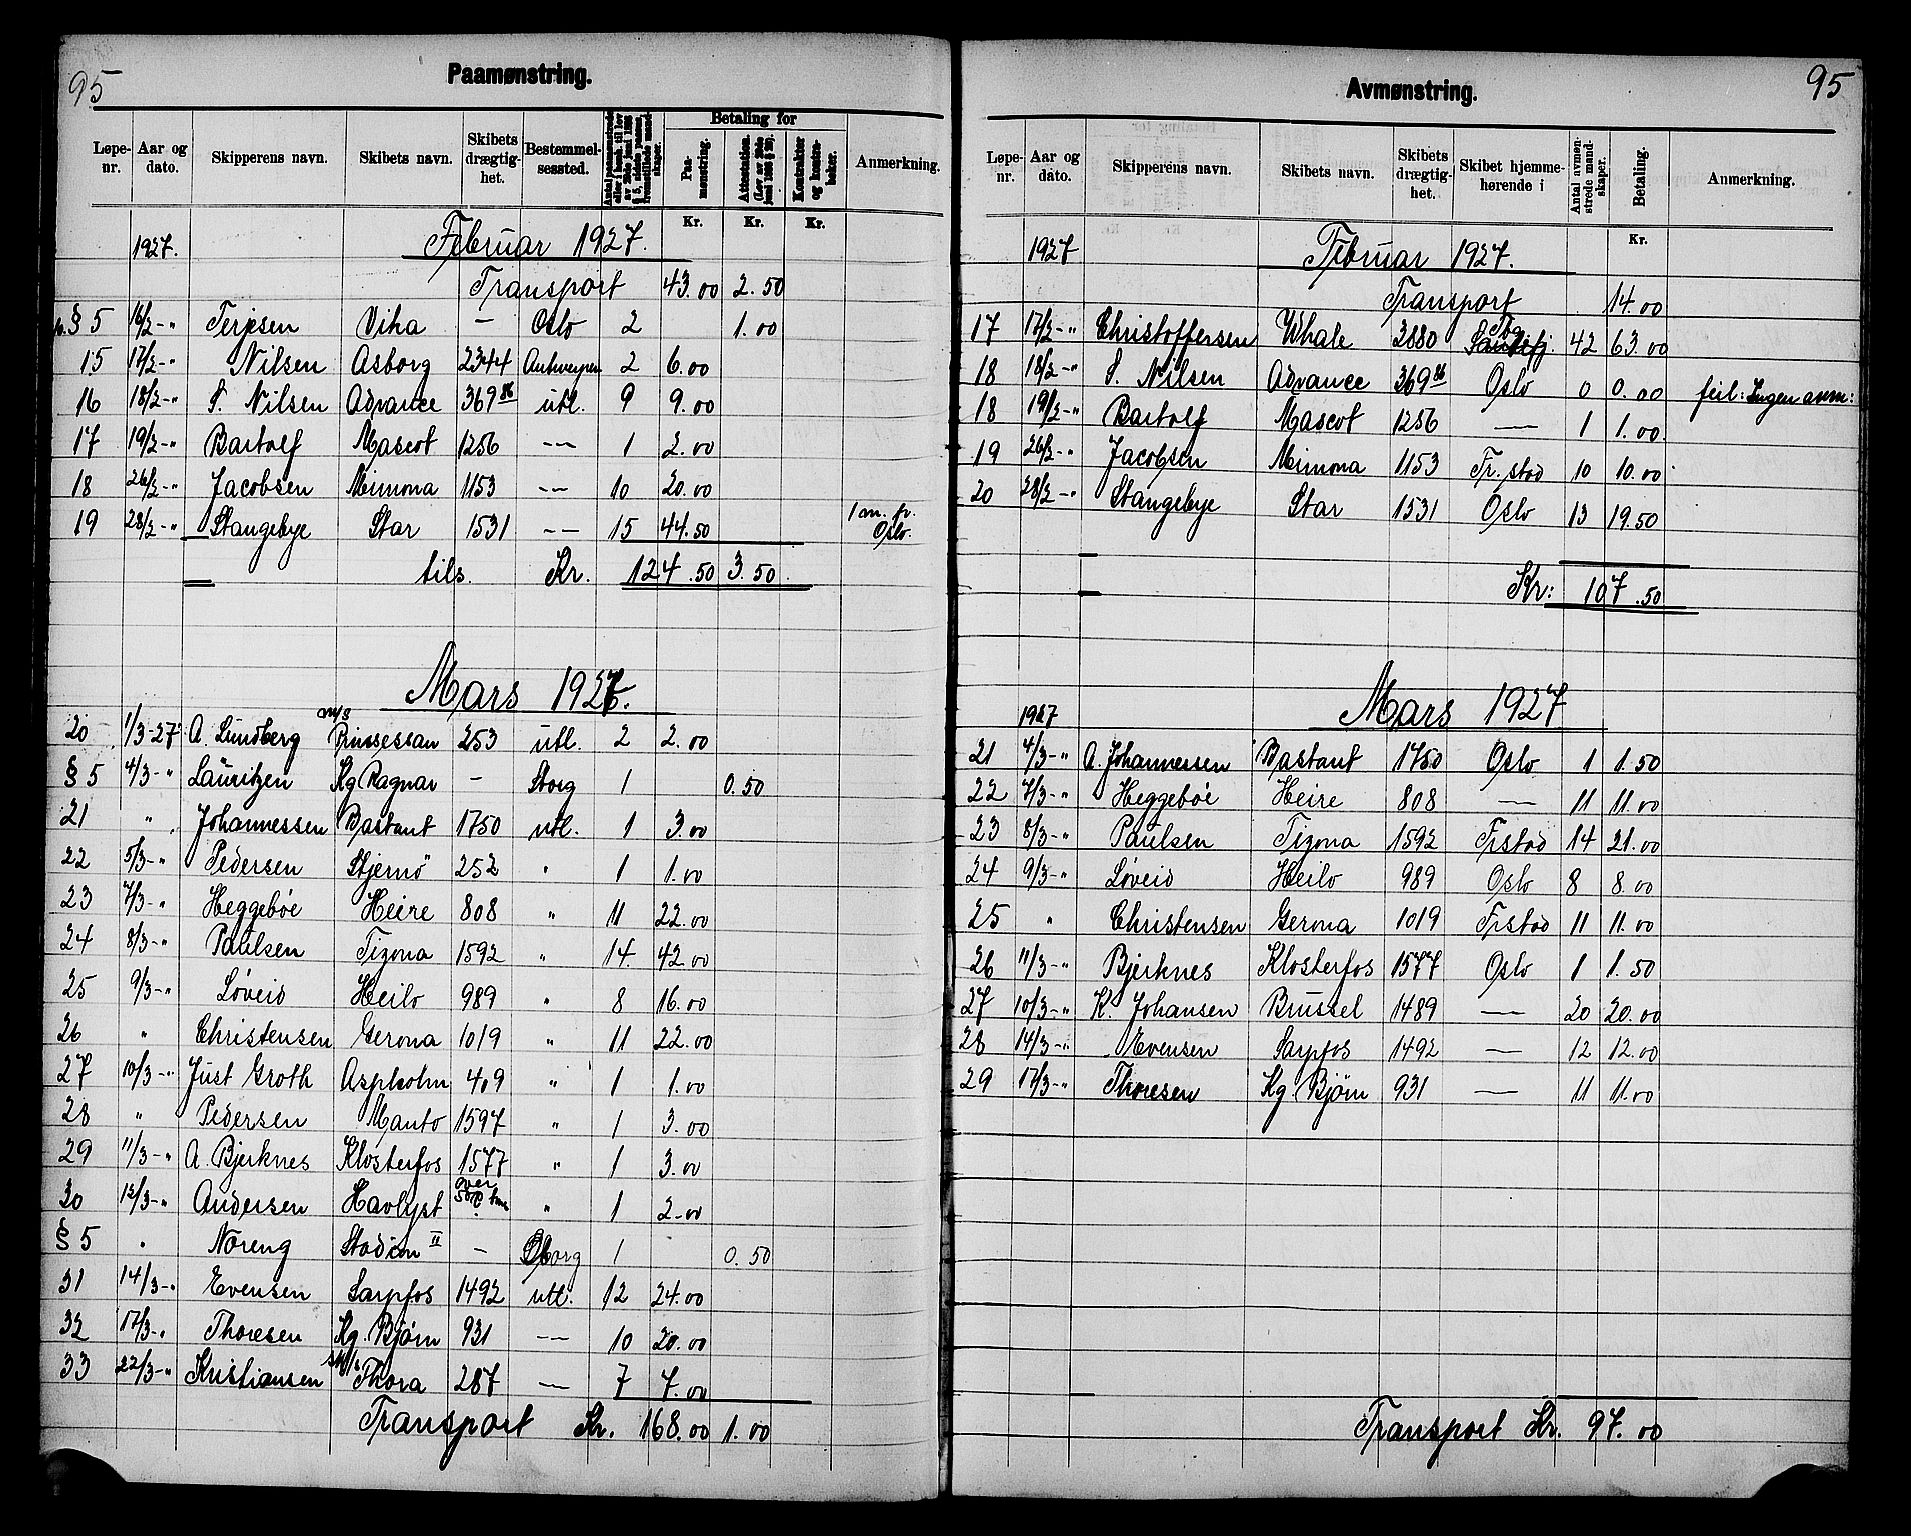 95
Paamønstring.
Løpe-nr. Aar og dato. Skipperens navn. Skibets navn. Skibets drægtig-het. Bestemmel-sessted. Betaling for Paa-mønstring. Attestation. Kontrakter og kontra-bøker. Anmerkning.
Kr. Kr. Kr.
1927. Februar 1927.
Transport 43.00 2.50
§ 5 16/2-" Terjesen Viha - Oslo 2 1.00
15 17/2-" Nilsen Asborg 2344 Antwerpen 2 6.00
16 18/2-" S. Nilsen Advance 369 86 utl. 9 9.00
17 19/2-" Bartolf Mascot 1256 -- 1 2.00
18 26/2-" Jacobsen Mimona 1153 -- 10 20.00
19 28/2-" Stangebye Star 1531 -- 15 44.50 1 m. fr. Oslo.
tils. Kr. 124.50 3.50
Mars 1927.
20 1/3-27 A. Lundberg m/s Prinsessan 253 utl. 2 2.00
§ 5 4/3-" Lauritzen Kg Ragnar - Sborg 1 0.50
21 " Johannessen Bastant 1750 utl. 1 3.00
22 5/3-" Pedersen Stjernö 252 " 1 1.00
23 7/3-" Heggebøe Heire 808 " 11 22.00
24 8/3-" Paulsen Tizona 1592 " 14. 42.00
25 9/3-" Løveid Heilo 989 " 8 16.00
26 " Christensen Gerona 1019 " 11 22.00
27 10/3-" Just Groth Aspholm 409 " 1 1.00
28 " Pedersen Manto 1597 " 1 3.00
29 11/3-" A. Bjerknes Klosterfos 1577 " 1 3.00
30 12/3-" Andersen Havlyst over 500 " 1 2-00
§ 5 " Noreng Stadion II - 1 0.50
31 14/3-" Evensen Sarpfos 1492 utl. 12 24.00
32 17/3-" Thoresen Kg. Bjørn 931 -- 10 20.00
33 22/3-" Kristiansen Thora 287 -- 7 7.00
Transport Kr. 168.00 1.00
95
Avmønstring.
Løpe-nr. Aar og dato. Skipperens navn. Skibets navn. Skibets drægtig-het. Skibet hjemme-hørende i Antal avmøn-strede mand-skaper. Betaling. Anmerkning.
Kr.
1927 Februar 1927.
Transport 14.00
17 17/2-" Christoffersen Whale 3880 Tbg 42 63.00
18 18/2-" S. Nilsen Advance 369 86 Oslo 0 0.00 feil: Ingen avm:
18 19/2-" Bartolf Mascot 1256 -- 1 1.00
19 26/2-" Jacobsen Mimona 1153 Fr. stad 10 10.00
20 28/2-" Stangebye Star 1531 Oslo 13 19.50
Kr: 107.50
Mars 1927
1927
21 4/3-" A. Johannessen Bastant 1750 Oslo 1 1.50
22 7/3-" Heggebøe Heire 808 -- 11 11.00
23 8/3-" Paulsen Tizona 1592 Frstad 14 21.00
24 9/3-" Løveid Heilo 989 Oslo 8 8.00
25 " Christensen Gerona 1019 Frstad 11 11.00
26 11/3-" Bjerknes Klosterfos 1577 Oslo 1 1.50
27 10/3-" K. Johansen Brussel 1489 -- 20 20.00
28 14/3-" Evensen Sarpfos 1492 -- 12 12.00
29 17/3-" Thoresen Kg. Bjørn 931 -- 11 11.00
Transport Kr. 97.00